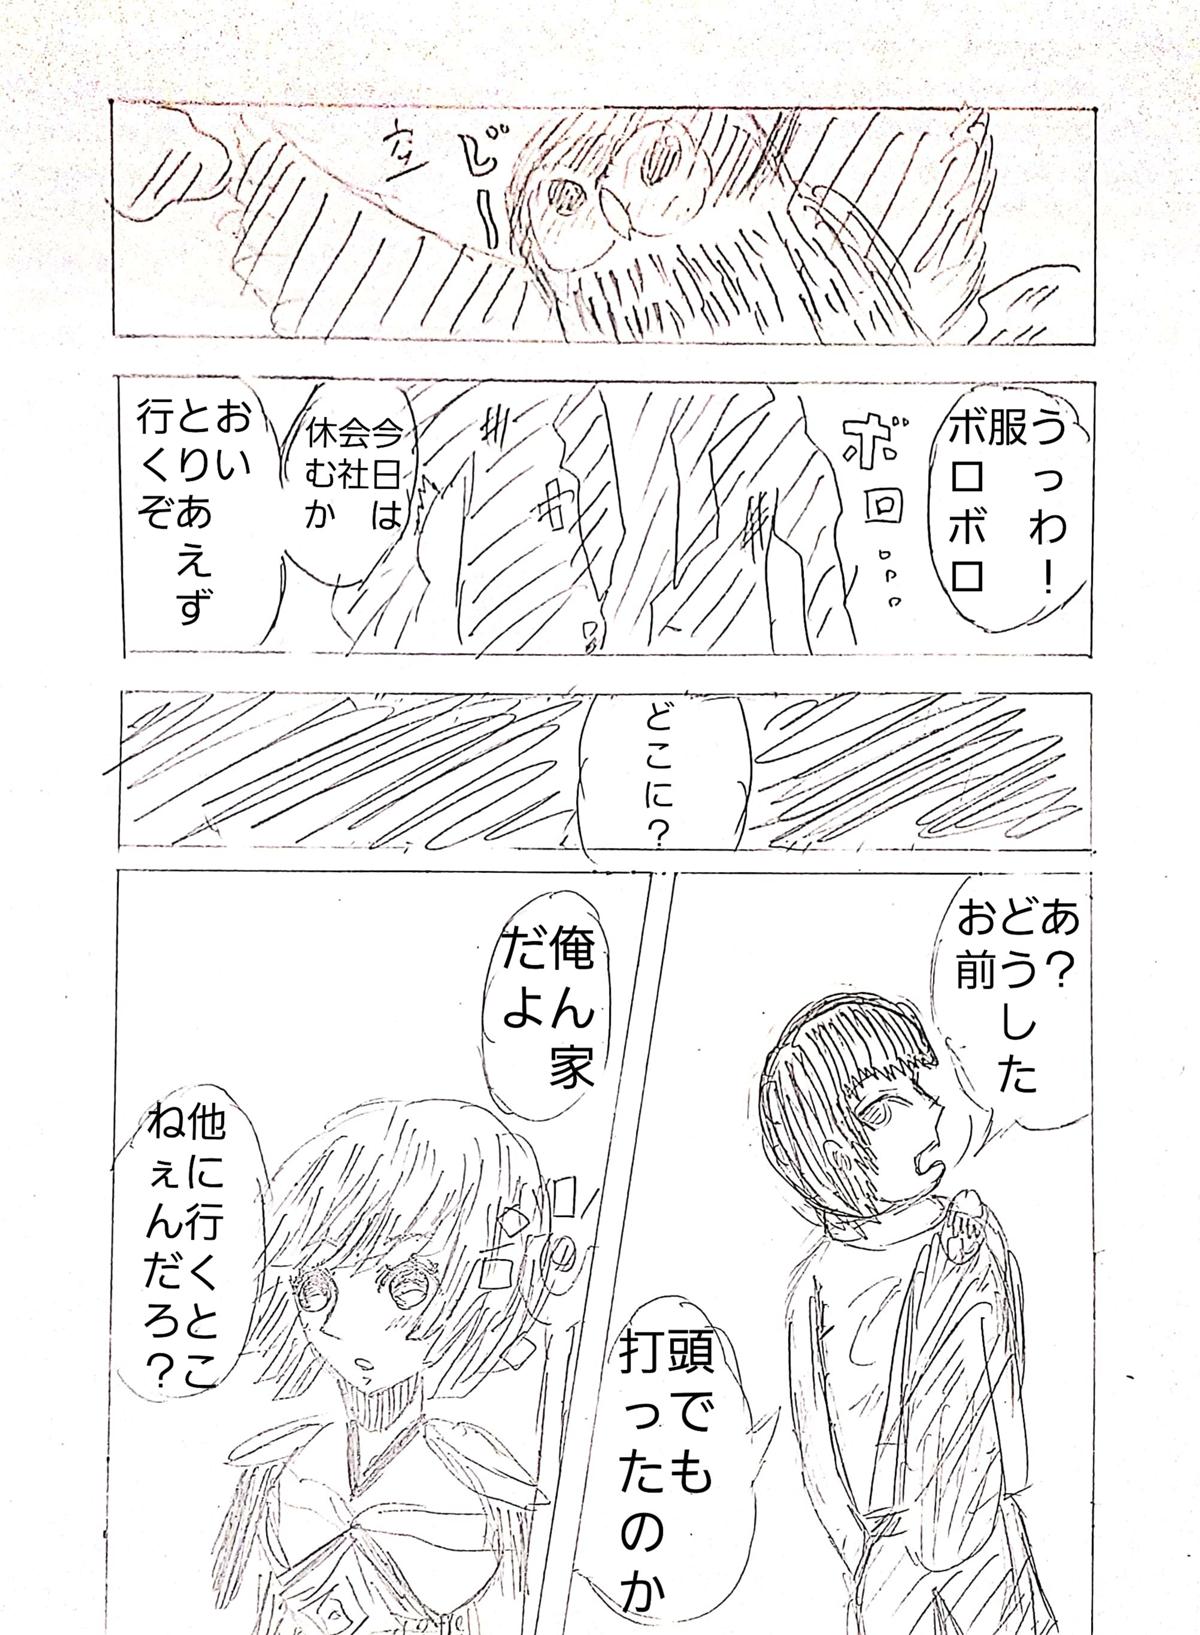 じー
うっわ！
服
ボロボロ
ボロ...
今日は
会社
休むか
おい
とりあえず
行くぞ
どこに？
あ？
どうした
お前
頭でも
打ったのか
俺ん家
だよ
他に行くとこ
ねぇんだろ？